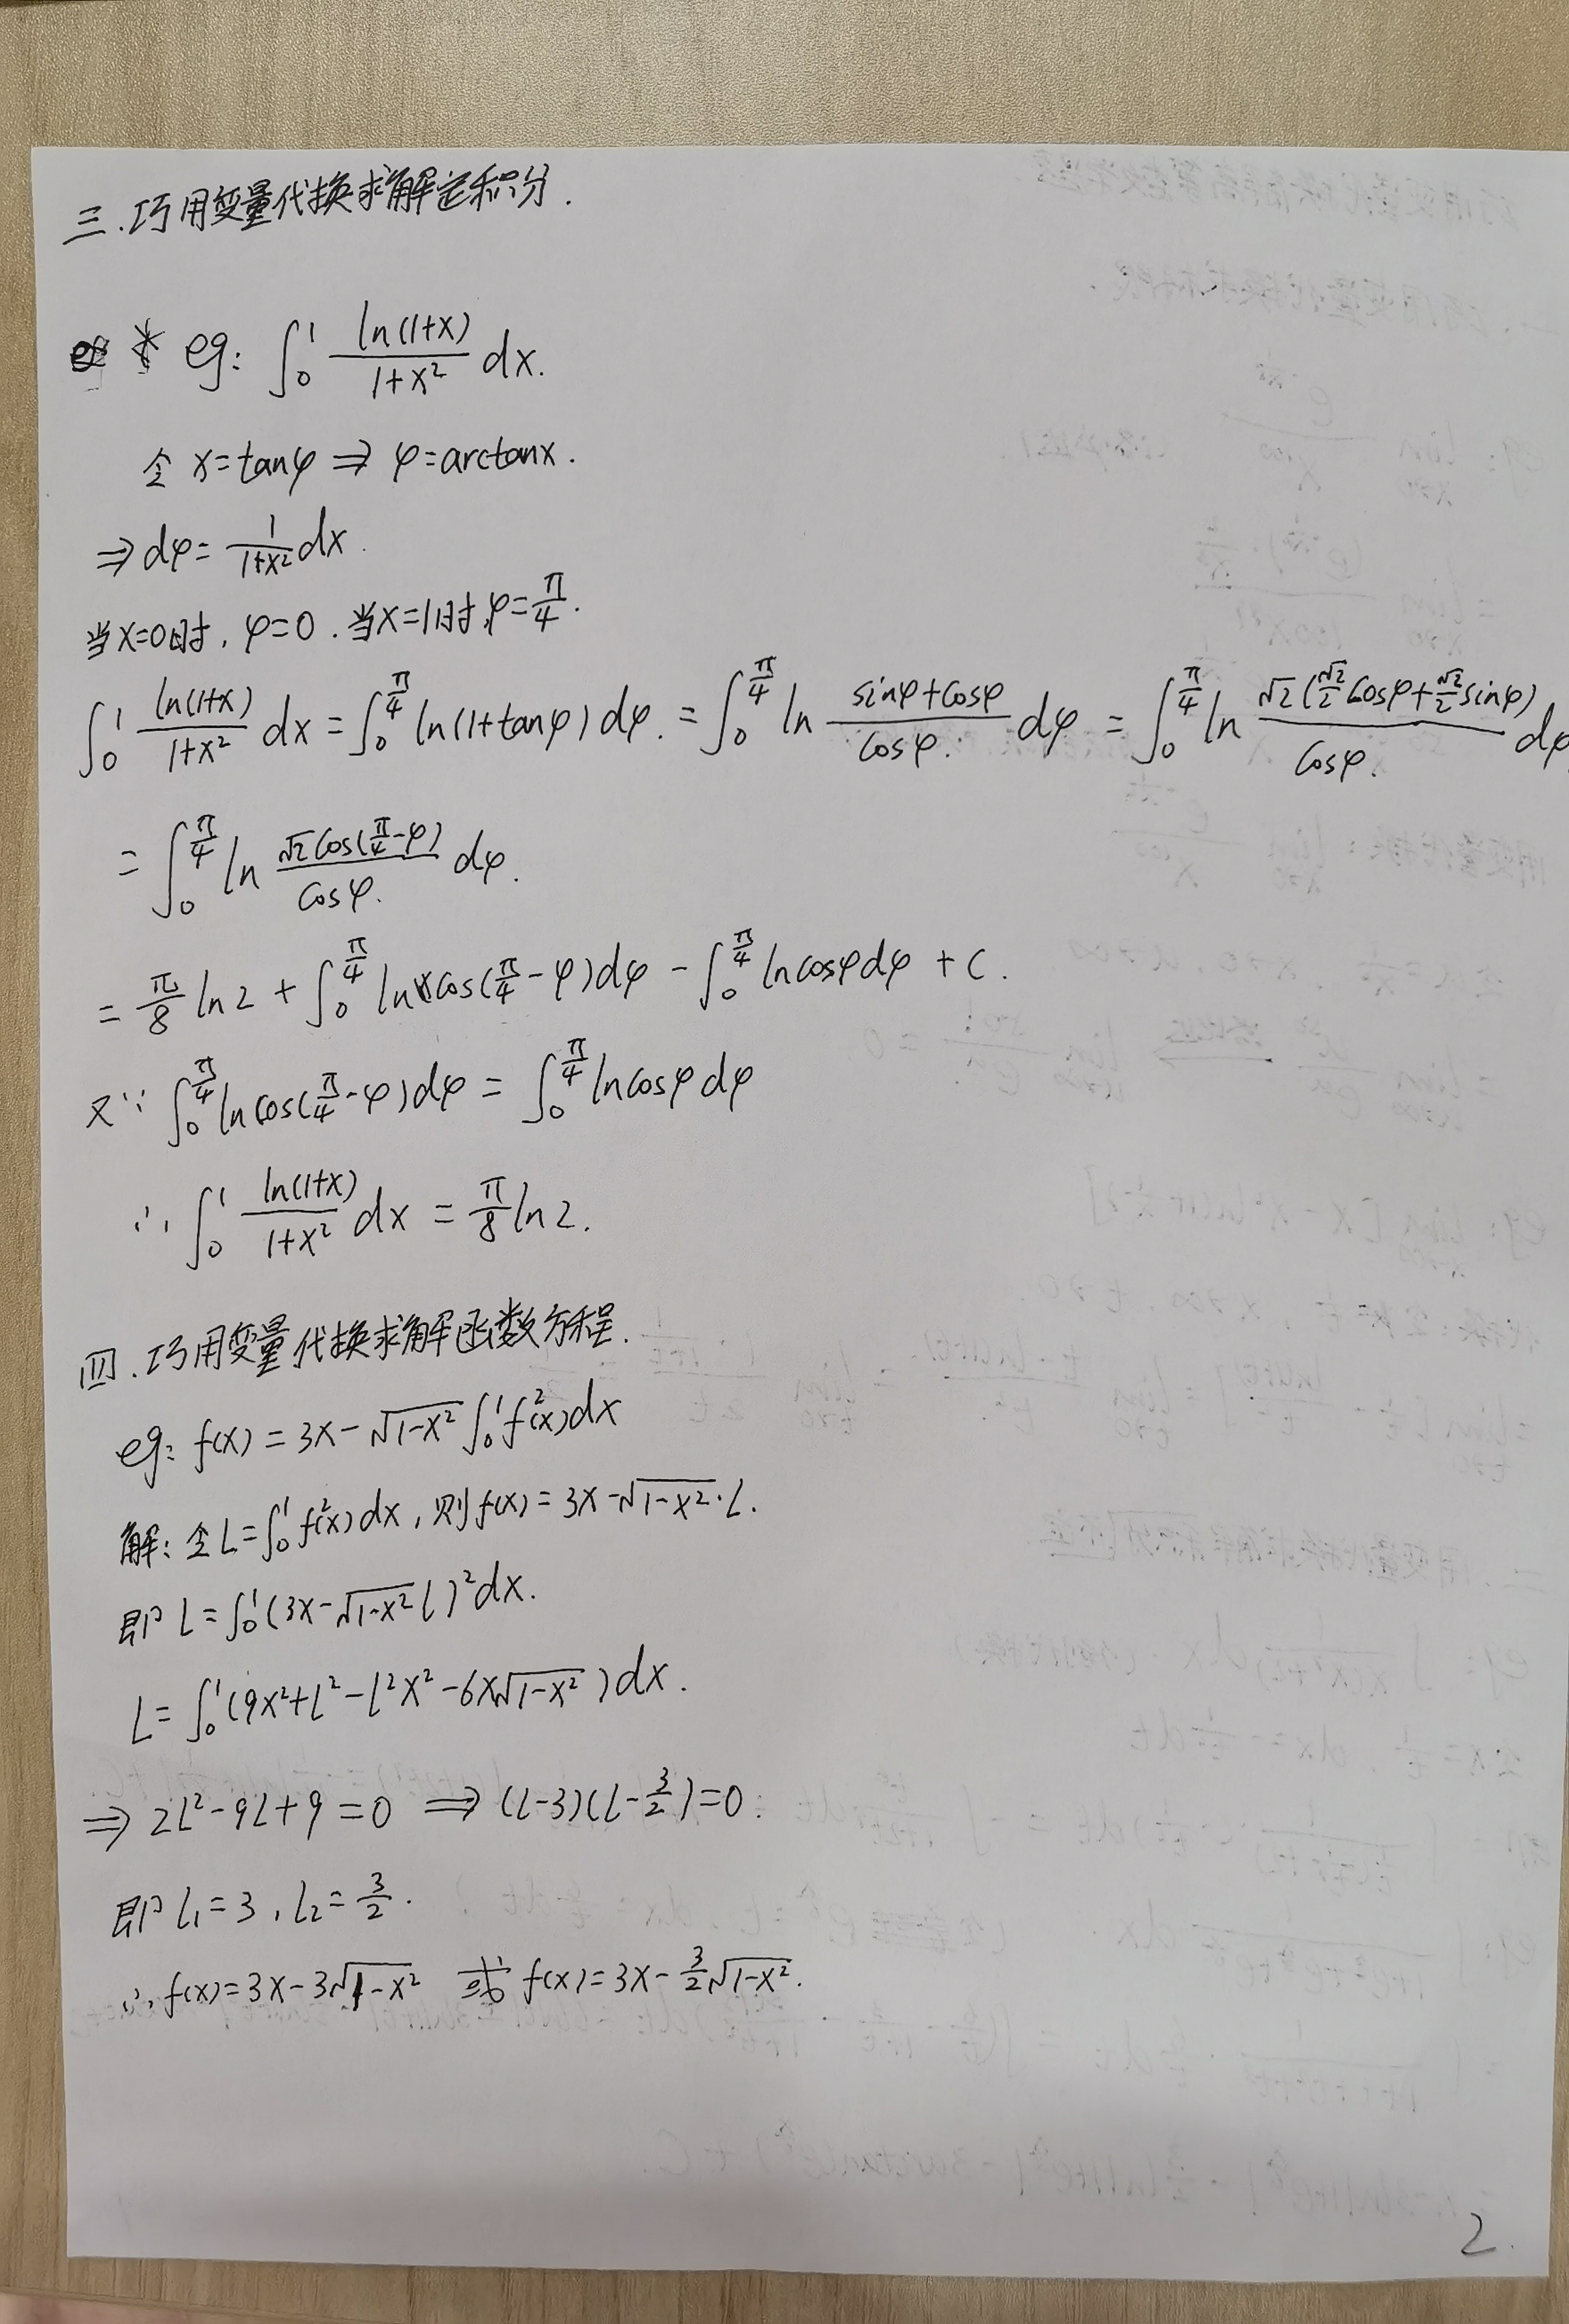 三.巧用变量代换求解定积分.
* eg: ∫₀¹ ln(1+x)/(1+x²) dx.
令 x=tanφ ⇒ φ=arctanx.
⇒ dφ= 1/(1+x²) dx.
当x=0时, φ=0. 当x=1时, φ=π/4.
∫₀¹ ln(1+x)/(1+x²) dx = ∫₀^(π/4) ln(1+tanφ) dφ. = ∫₀^(π/4) ln (sinφ+cosφ)/cosφ. dφ = ∫₀^(π/4) ln √2(√2/2 cosφ+√2/2 sinφ)/cosφ. dφ
= ∫₀^(π/4) ln √2cos(π/4-φ)/cosφ. dφ.
= π/8 ln2 + ∫₀^(π/4) ln cos(π/4-φ)dφ - ∫₀^(π/4) lncosφdφ + C.
又∵ ∫₀^(π/4) lncos(π/4-φ)dφ = ∫₀^(π/4) lncosφ dφ
∴ ∫₀¹ ln(1+x)/(1+x²) dx = π/8 ln2.
四.巧用变量代换求解函数方程.
eg: f(x) = 3x-√(1-x²) ∫₀¹ f²(x)dx
解: 令L=∫₀¹ f²(x)dx, 则f(x) = 3x-√(1-x²)·L.
即 L=∫₀¹ (3x-√(1-x²) L)²dx.
L= ∫₀¹ (9x²+L²-L²x²-6x√(1-x²) )dx.
⇒ 2L²-9L+9=0 ⇒ (L-3)(L-3/2)=0.
即 L₁=3, L₂=3/2.
∴ f(x)=3x-3√(1-x²) 或 f(x)=3x-3/2√(1-x²).
2.